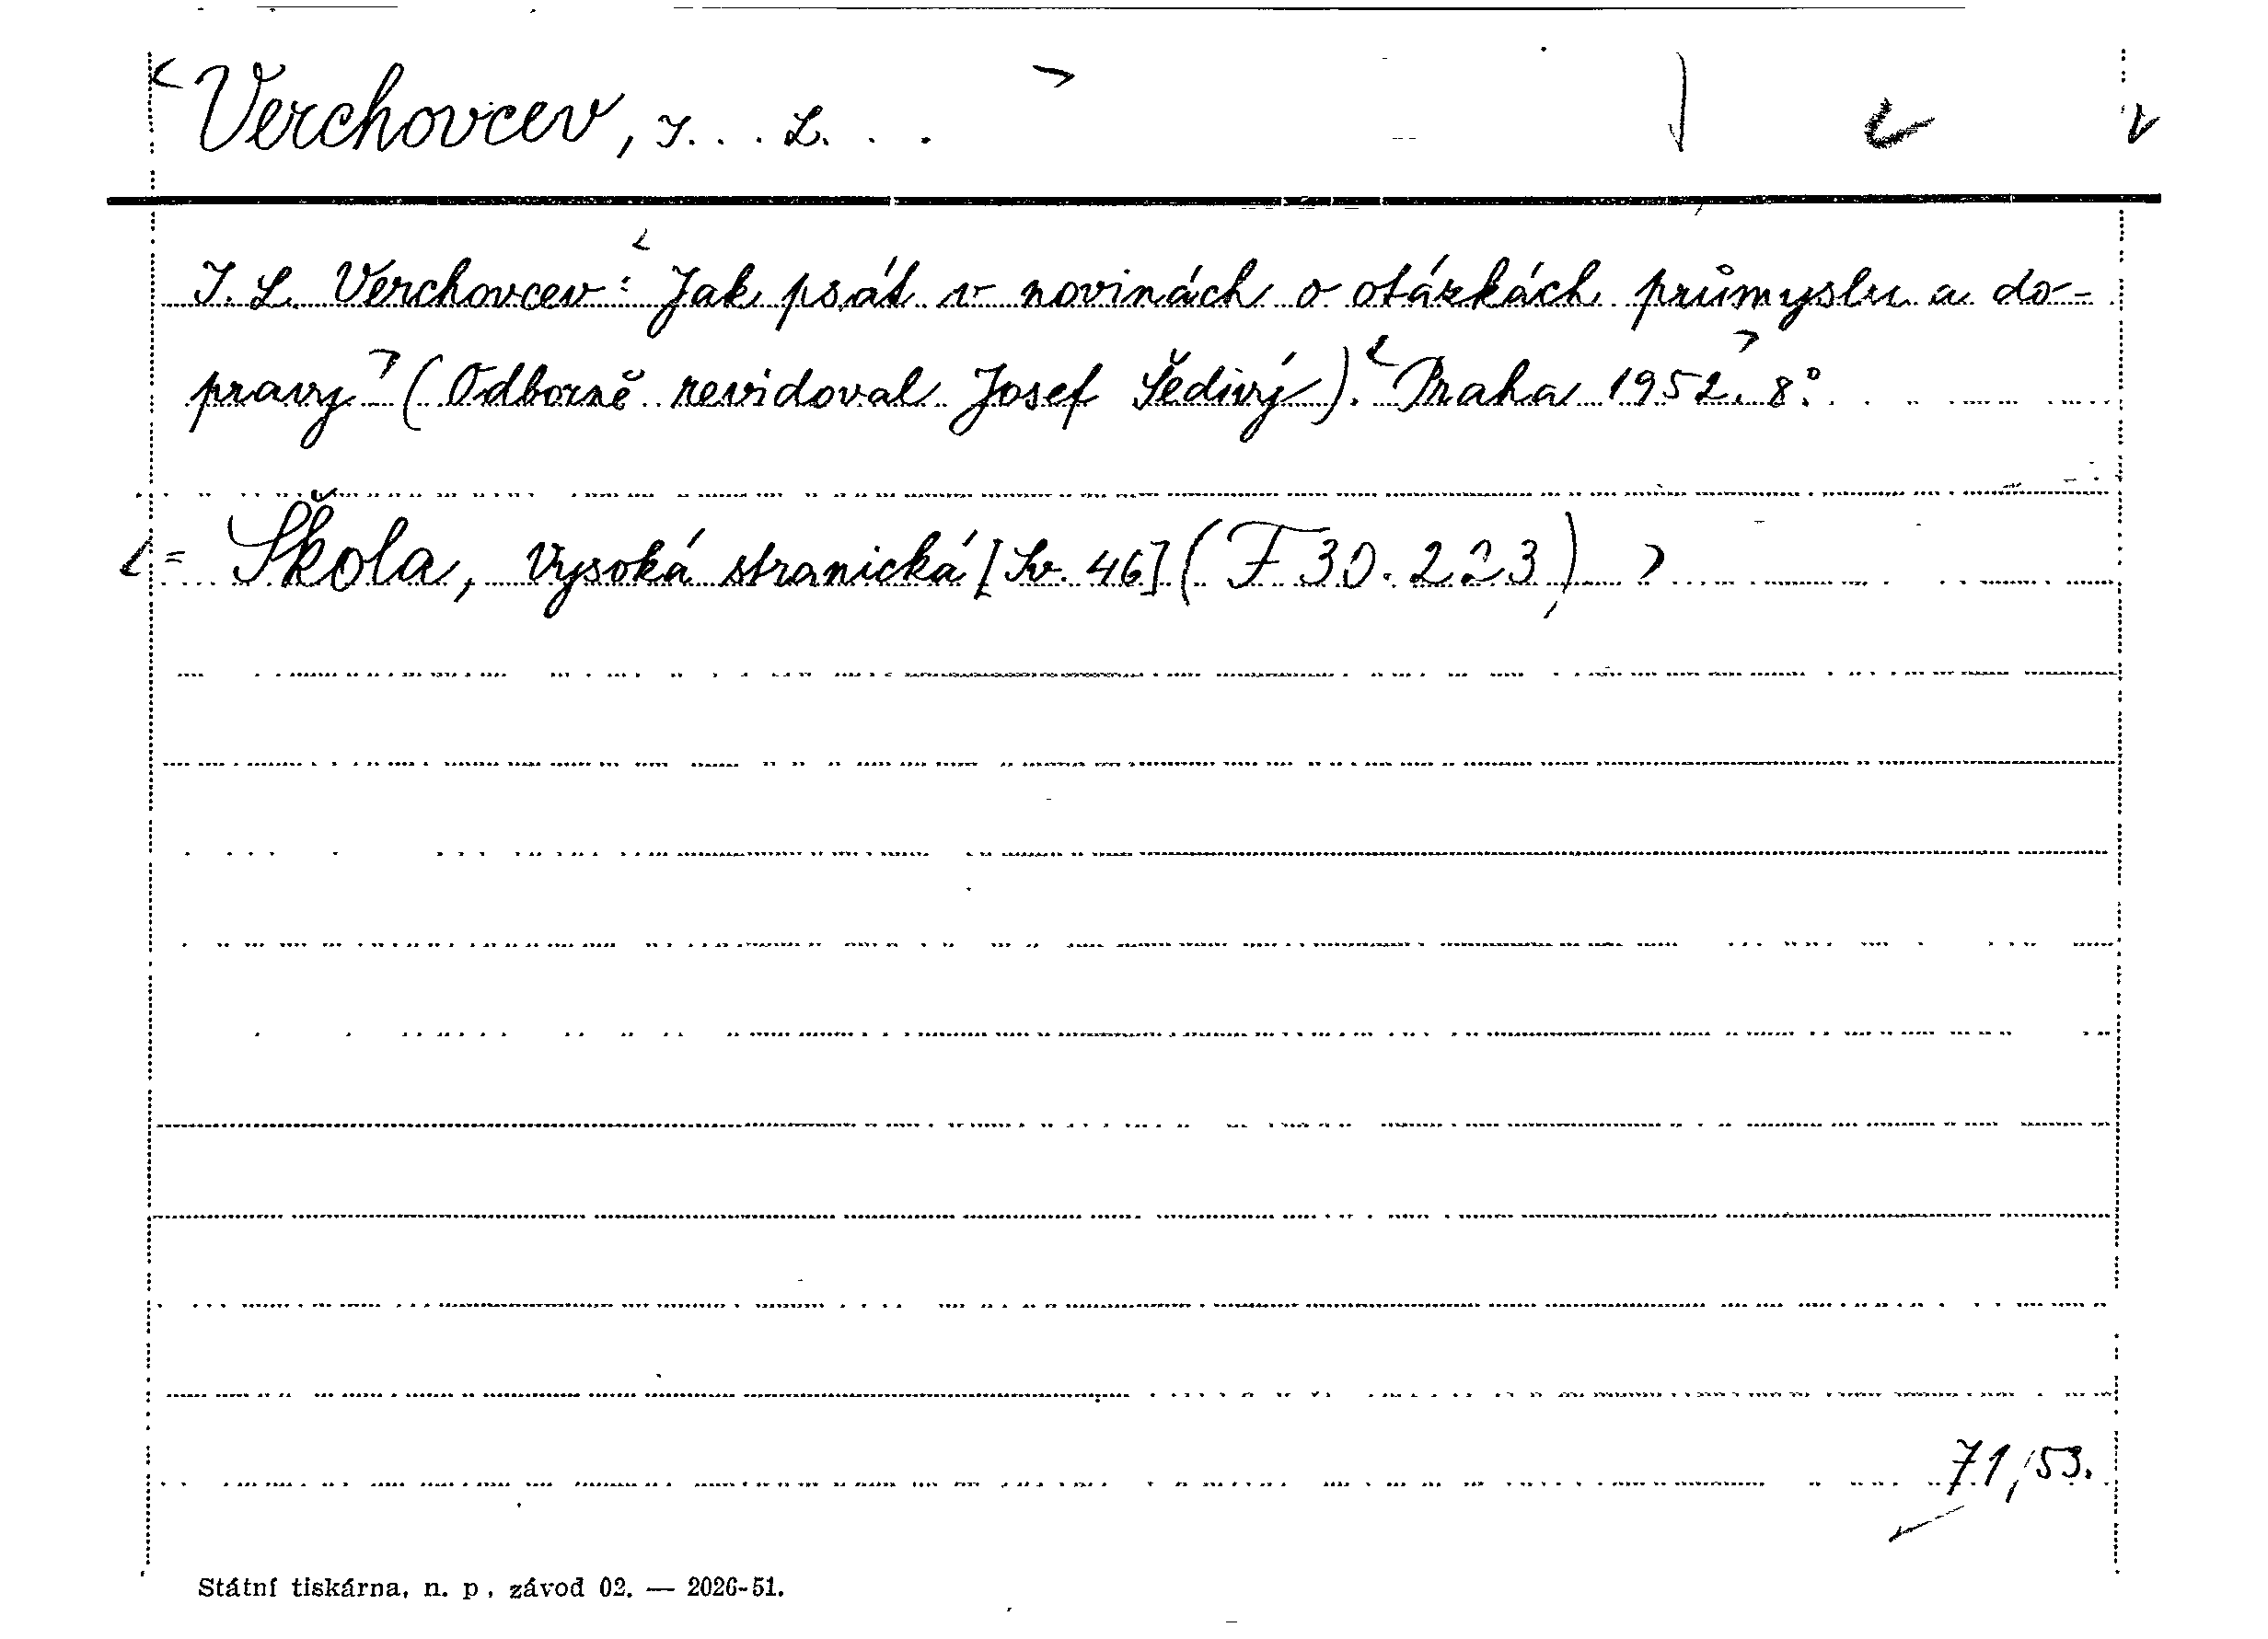 Verchovcev, I... L...
I. L. Verchovcev: Jak psát v novinách o otázkách průmyslu a do-
pravy (Odborně revidoval Josef Šedivý). Praha 1952. 8°.
= Škola, Vysoká stranická [Sv. 46] (F 30.223)
71,53.
Státní tiskárna, n. p., závod 02. — 2026-51.